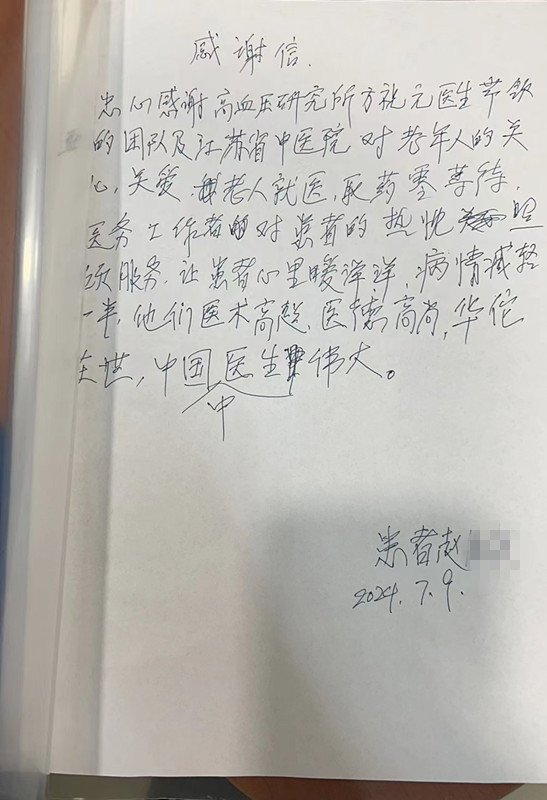 感谢信.
忠心感谢高血压研究所方祝元医生带领
的团队及江苏省中医院对老年人的关
心,关爱老人就医,取药零等待,
医务工作者对患者的热忱照
顾服务.让患者心里暖洋洋,病情减轻
一半,他们医术高超,医德高尚,华佗
在世,中国医生伟大。
中
患者赵
2024.7.9.